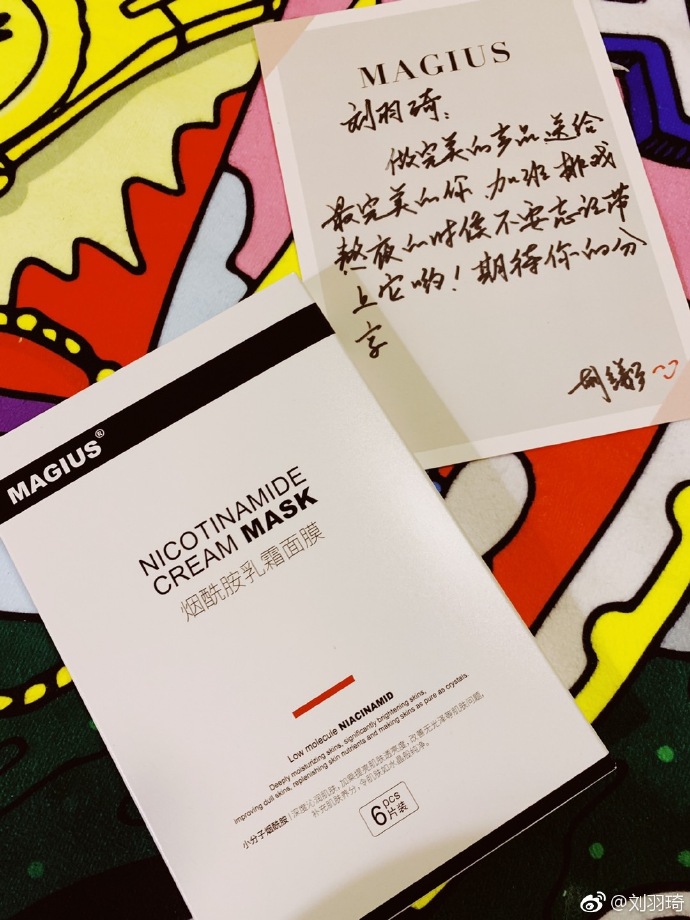 MAGIUS
刘羽琦：
做完美的产品送给
最完美的你，加班排戏
熬夜的时候不要忘记带
上它哟！期待你的分
享
MAGIUS®
NICOTINAMIDE
CREAM MASK
烟酰胺乳霜面膜
Low molecule NIACINAMID
Deeply moisturizing skins, significantly brightening skins,
improving dull skins, replenishing skin nutrients and making skins as pure as crystals.
小分子烟酰胺 | 深度沁润肌肤，加乘提亮肌肤透亮度，改善无光泽等肌肤问题，
补充肌肤养分，令肌肤如水晶般纯净。
6 pcs
片装
@刘羽琦